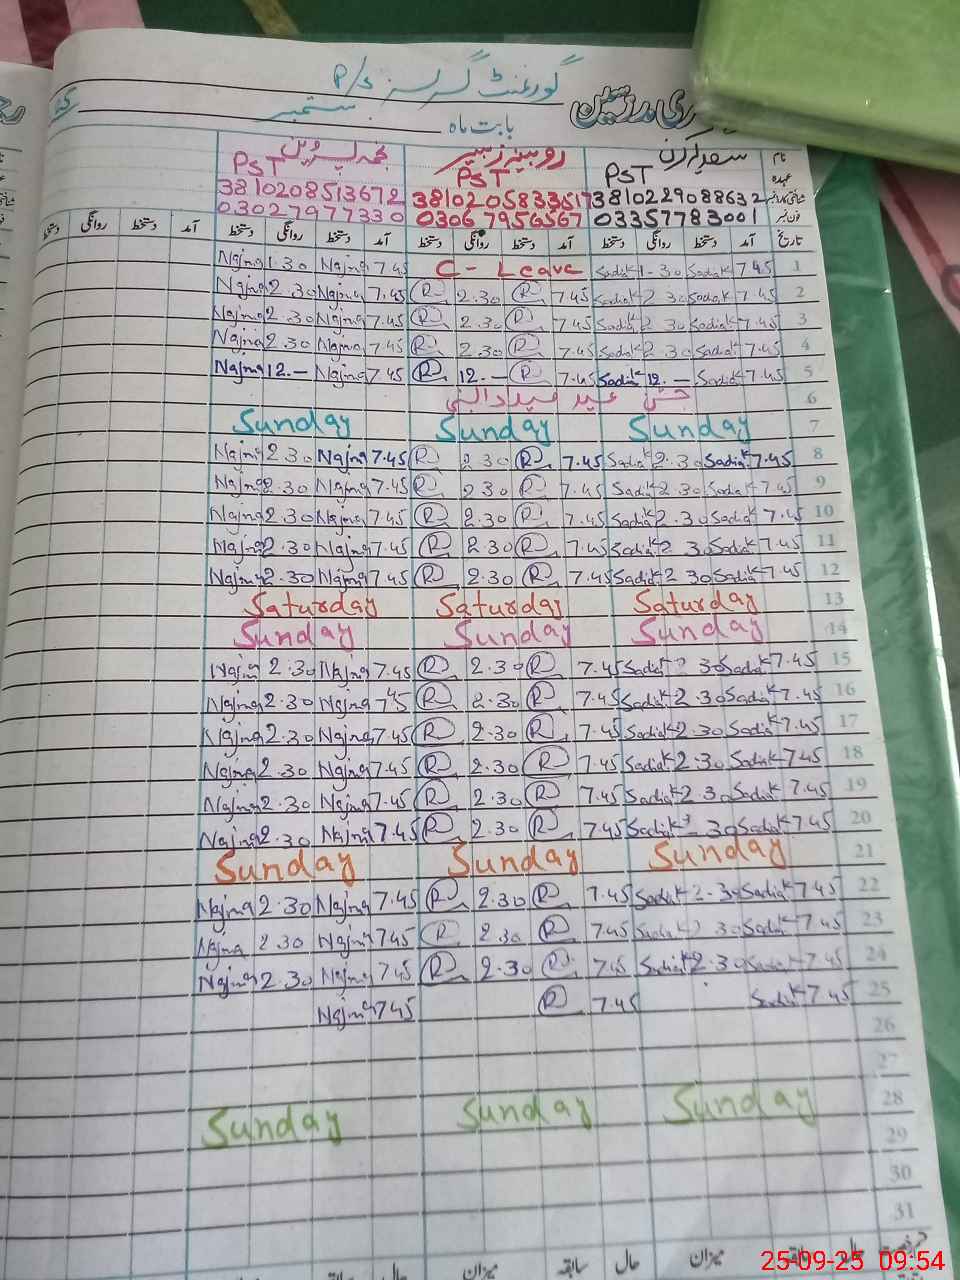 گورنمنٹ گرلز P/S
ری مدرسین
بابت ماہ ستمبر
نام سعدیہ کرن روبینہ زبیر نجمہ پروین
عہدہ PST PST PST
شناختی کارڈ نمبر 3810229088632 3810205833517 3810208513672
فون نمبر 03357783001 03067956567 03027977330
تاریخ آمد دستخط روانگی دستخط آمد دستخط روانگی دستخط آمد دستخط روانگی دستخط آمد دستخط روانگی دستخط
1 7.45 SadiaK 1-30 SadiaK C-Leave 7.45 Najma 1.30 Najma
2 7.45 SadiaK 2.30 SadiaK 7.45 R 2.30 R 7.45 Najma 2.30 Najma
3 7.45 SadiaK 2.30 SadiaK 7.45 R 2.30 R 7.45 Najma 2.30 Najma
4 7.45 SadiaK 2.30 SadiaK 7.45 R 2.30 R 7.45 Najma 2.30 Najma
5 7.45 SadiaK 12.- SadiaK 7.45 R 12.- R 7.45 Najma 12.- Najma
6 جشن عید میلادالنبی
7 Sunday Sunday Sunday
8 7.45 SadiaK 2.30 SadiaK 7.45 R 2.30 R 7.45 Najma 2.30 Najma
9 7.45 SadiaK 2.30 SadiaK 7.45 R 2.30 R 7.45 Najma 2.30 Najma
10 7.45 SadiaK 2.30 SadiaK 7.45 R 2.30 R 7.45 Najma 2.30 Najma
11 7.45 SadiaK 2.30 SadiaK 7.45 R 2.30 R 7.45 Najma 2.30 Najma
12 7.45 SadiaK 2.30 SadiaK 7.45 R 2.30 R 7.45 Najma 2.30 Najma
13 Saturday Saturday Saturday
14 Sunday Sunday Sunday
15 7.45 SadiaK 2.30 SadiaK 7.45 R 2.30 R 7.45 Najma 2.30 Najma
16 7.45 SadiaK 2.30 SadiaK 7.45 R 2.30 R 7.45 Najma 2.30 Najma
17 7.45 SadiaK 2.30 SadiaK 7.45 R 2.30 R 7.45 Najma 2.30 Najma
18 7.45 SadiaK 2.30 SadiaK 7.45 R 2.30 R 7.45 Najma 2.30 Najma
19 7.45 SadiaK 2.30 SadiaK 7.45 R 2.30 R 7.45 Najma 2.30 Najma
20 7.45 SadiaK 30 SadiaK 7.45 R 2.30 R 7.45 Najma 2.30 Najma
21 Sunday Sunday Sunday
22 7.45 SadiaK 2-30 SadiaK 7.45 R 2.30 R 7.45 Najma 2.30 Najma
23 7.45 SadiaK 2.30 SadiaK 7.45 R 2.30 R 7.45 Najma 2.30 Najma
24 7.45 SadiaK 2.30 SadiaK 7.45 R 2.30 R 7.45 Najma 2.30 Najma
25 7.45 SadiaK 7.45 R 7.45 Najma
26
27
28 Sunday Sunday Sunday
29
30
31
رخصت حال سابقہ میزان حال سابقہ میزان حال سابقہ
25-09-25 09:54